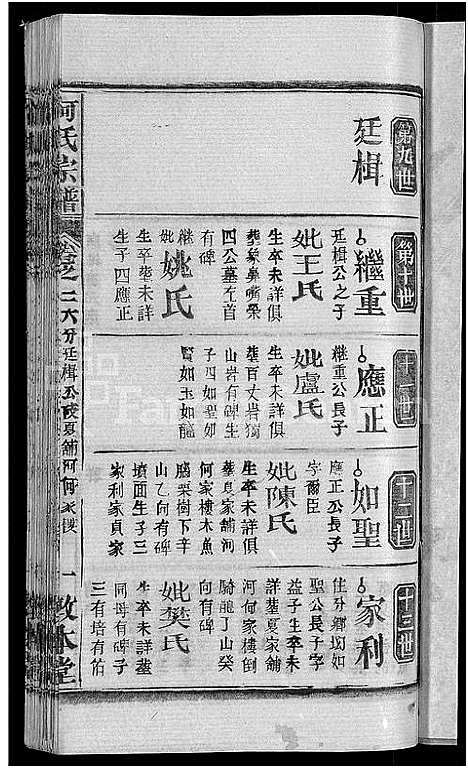 第九世
廷楫
第十世
繼重
廷楫公之子
妣王氏
生卒未詳俱
葬象鼻嘴榮
四公墓左首
有碑
繼妣姚氏
生卒葬未詳
生子四應正
十一世
應正
繼重公長子
妣盧氏
生卒未詳俱
葬百丈岩獨
山岩有碑生
子四如聖如
賢如玉如龍
十二世
如聖
應正公長子
字爾臣
妣陳氏
生卒未詳俱
葬夏家舖河
何家樓木魚
腦栗樹下辛
山乙向有碑
墳面生子三
家利家貞家
十三世
家利
住分鄉坳如
聖公長子字
益子生卒未
詳葬夏家舖
河何家樓倒
騎龍丁山癸
向有碑
妣樊氏
生卒未詳葬
同母有碑子
三有培有佑
何氏宗譜
卷之二六分廷楫公廷夏舖河何家樓
一
敦本堂